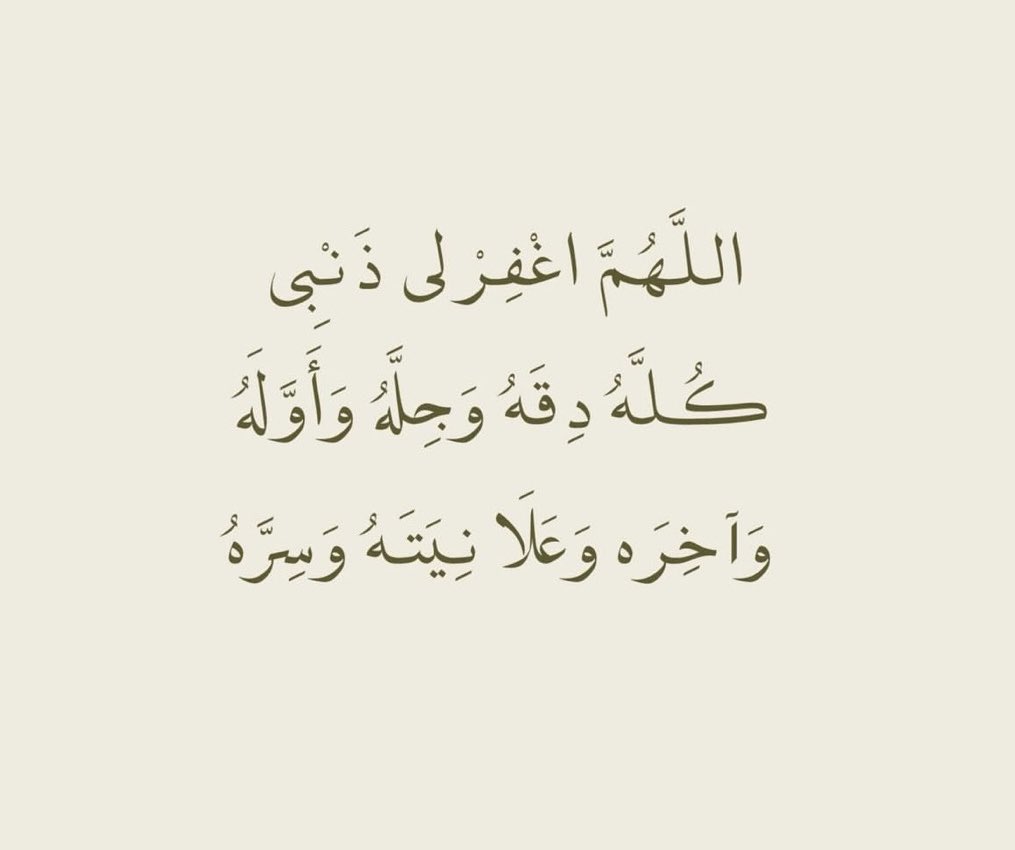 اللَّهُمَّ اغْفِرْ لى ذَنْبِى
كُلَّهُ دِقَهُ وَجِلَّهُ وَأَوَّلَهُ
وَآخِرَه وَعَلَا نِيَتَهُ وَسِرَّهُ